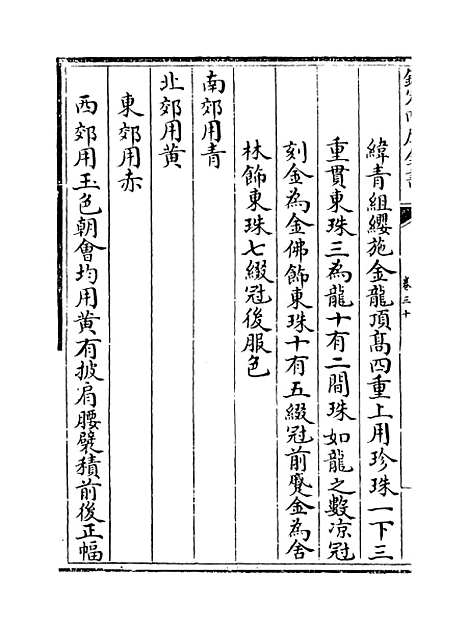 欽定四庫全書
卷三十
緯青組纓施金龍頂高四重上用珍珠一下三
重貫東珠三為龍十有二間珠如龍之數凉冠
刻金為金佛飾東珠十有五綴冠前蹙金為舍
林飾東珠七綴冠後服色
南郊用青
北郊用黄
東郊用赤
西郊用玉色朝會均用黄有披肩腰襞積前後正幅